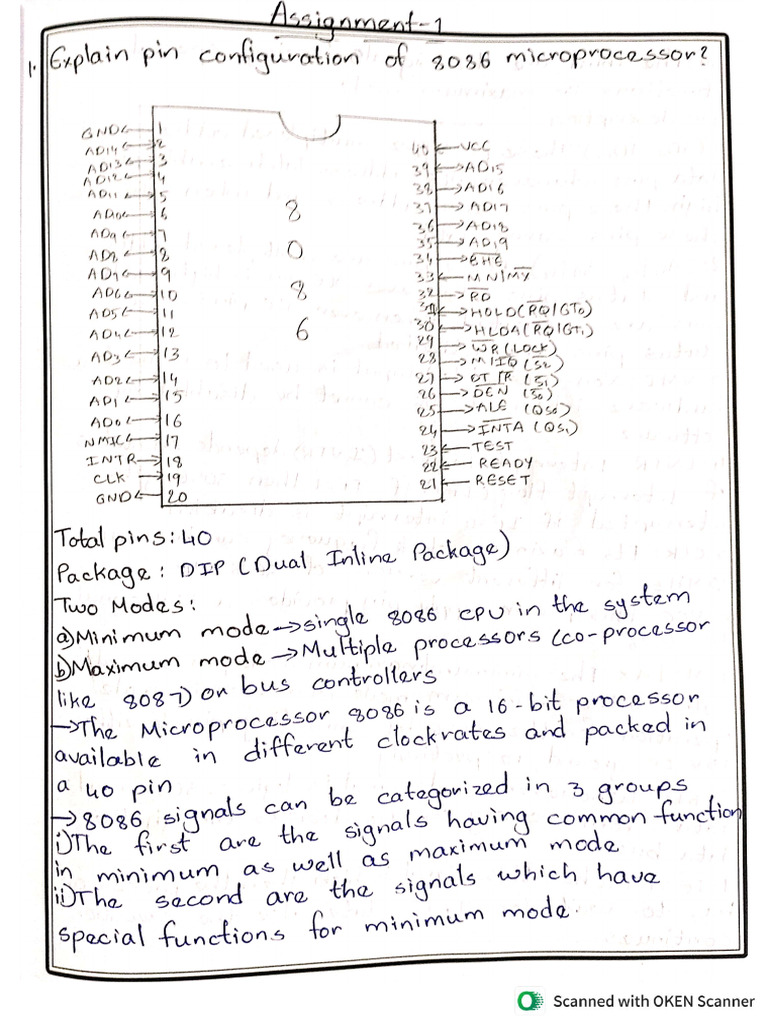 Assignment-1
1. Explain pin configuration of 8086 microprocessor?
GND 1
AD14 2
AD13 3
AD12 4
AD11 5
AD10 6
AD9 7
AD8 8
AD7 9
AD6 10
AD5 11
AD4 12
AD3 13
AD2 14
AD1 15
AD0 16
NMI 17
INTR 18
CLK 19
GND 20
8
0
8
6
40 VCC
39 AD15
38 AD16
37 AD17
36 AD18
35 AD19
34 BHE
33 MN/MX
32 RD
31 HOLD(RQ/GT0)
30 HLDA(RQ/GT1)
29 WR(LOCK)
28 M/IO(S2)
27 DT/R(S1)
26 DEN(S0)
25 ALE(QS0)
24 INTA(QS1)
23 TEST
22 READY
21 RESET
Total pins: 40
Package: DIP (Dual Inline Package)
Two Modes:
a) Minimum mode→single 8086 CPU in the system
b) Maximum mode→Multiple processors (co-processor
like 8087) on bus controllers
→The Microprocessor 8086 is a 16-bit processor
available in different clockrates and packed in
a 40 pin
→8086 signals can be categorized in 3 groups
i) The first are the signals having common function
in minimum as well as maximum mode
ii) The second are the signals which have
special functions for minimum mode.
Scanned with OKEN Scanner